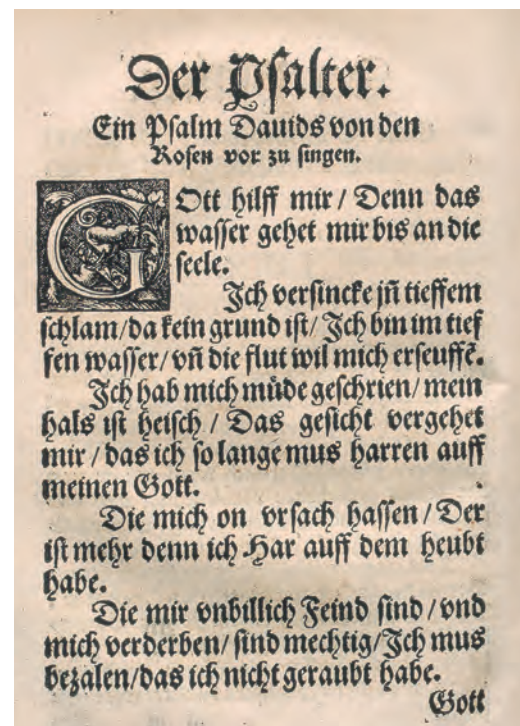 Der Psalter.
Ein Psalm Dauids von den
Rosen vor zu singen.
GOtt hilff mir / Denn das
wasser gehet mir bis an die
seele.
Jch versincke jñ tieffem
schlam/da kein grund ist/ Jch bin im tief
fen wasser/ vñ die flut wil mich erseuffẽ.
Jch hab mich müde geschrien/ mein
hals ist heisch / Das gesicht vergehet
mir / das ich so lange mus harren auff
meinen Gott.
Die mich on vrsach hassen / Der
ist mehr denn ich Har auff dem heubt
habe.
Die mir vnbillich Feind sind / vnd
mich verderben/ sind mechtig/Jch mus
bezalen/das ich nicht geraubt habe.
Gott